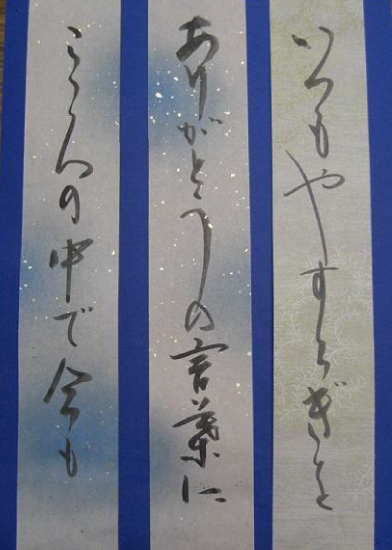 いつもやすらぎを
ありがとうの言葉に
こころの中で今も